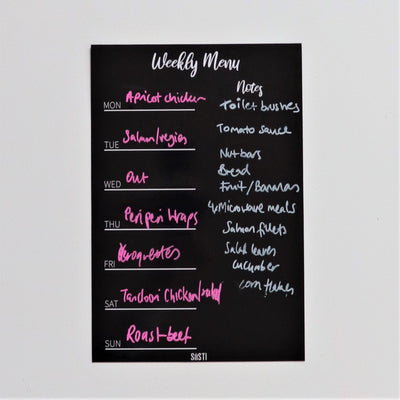 Weekly Menu
Notes
MON Apricot chicken
TUE Salmon/vegies
WED Out
THU Peri peri wraps
FRI Kroquettes
SAT Tandoori Chicken/salad
SUN Roast beef
Toilet brushes
Tomato sauce
Nut bars
Bread
Fruit/Bananas
4x Microwave meals
Salmon fillets
Salad leaves
Cucumber
Corn flakes
SiiSTi